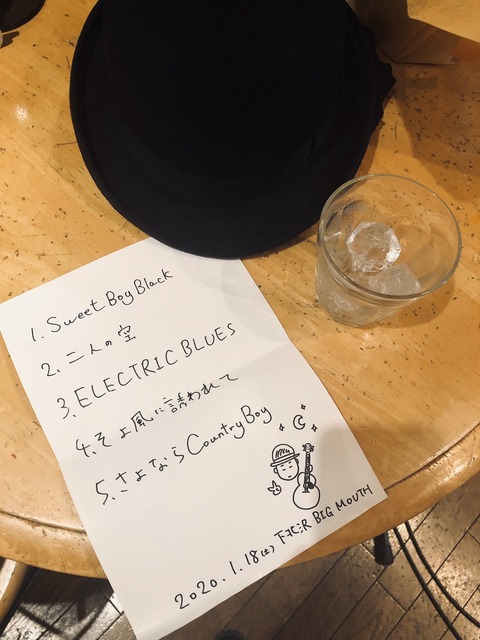 1. Sweet Boy Black
2. 二人の空
3. ELECTRIC BLUES
4. そよ風に誘われて
5. さよならCountry Boy
2020.1.18(土) 下北沢 BIG MOUTH